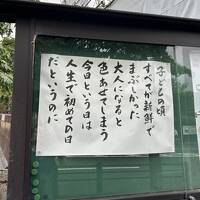 子どもの頃
すべてが新鮮で
まぶしかった
大人になると
色あせてしまう
今日という日は
人生で初めての日
だというのに